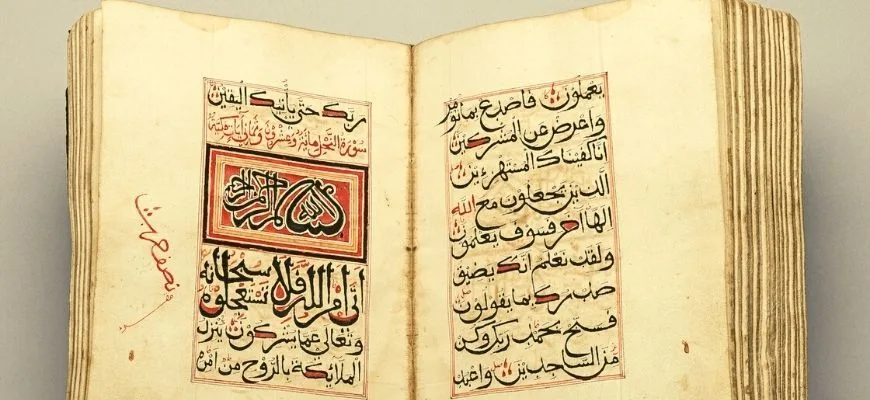 يعملون فاصدع بما تؤمر
واعرض عن المشركين
انا كفيناك المستهزءين
الذين يجعلون مع الله
الها اخر فسوف يعلمون
ولقد نعلم انك يضيق
صدرك بما يقولون
فسبح بحمد ربك وكن
من الساجدين واعبد
ربك حتى يأتيك اليقين
سورة النحل مائة وعشرون وثماني آيات مكية
بسم الله الرحمن الرحيم
اتى امر الله فلا تستعجلوه سبحانه
وتعالى عما يشركون ينزل
الملائكة بالروح من امره
نصف حزب